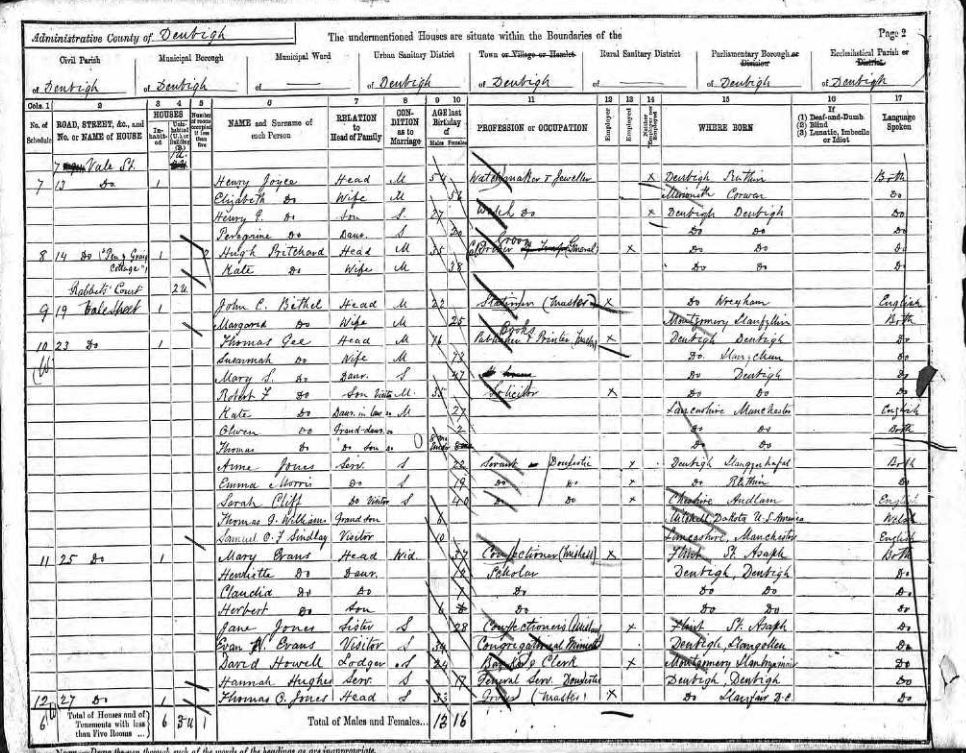 Administrative County of Denbigh The undermentioned Houses are situate within the Boundaries of the Page 2
Civil Parish Municipal Borough Municipal Ward Urban Sanitary District Town or Village or Hamlet Rural Sanitary District Parliamentary Borough or Division Ecclesiastical Parish or District
of Denbigh of Denbigh of of Denbigh of Denbigh of of Denbigh of Denbigh
Cols. 1 2 3 4 5 6 7 8 9 10 11 12 13 14 15 16 17
No. of Schedule ROAD, STREET, &c., and No. or NAME of HOUSE HOUSES Inhabited Uninhabited (U.) or Building (B.) Number of rooms occupied if less than five NAME and Surname of each Person RELATION to Head of Family CONDITION as to Marriage AGE last Birthday of Males Females PROFESSION or OCCUPATION Employer Employed Neither Employer nor Employed WHERE BORN If (1) Deaf-and-Dumb (2) Blind (3) Lunatic, Imbecile or Idiot Language Spoken
Vale St.
7 13 Do 1 Henry Joyce Head M 54 Watchmaker & Jeweller x Denbigh Ruthin Both
Elizabeth Do Wife M 56 Merioneth Corwen Do
Henry Do Son S. 27 Watch Do x Denbigh Denbigh Do
Peregrine Do Daur. S 20 Do Do Do
8 14 Do Cottage 1 2 Hugh Pritchard Head M 35 Groom x Do Do Do
Kate Do Wife M 38 Do Do Do
Rabbets' Court 2u
9 19 Vale Street 1 John C. Bethel Head M 22 Stationer (Master) x Do Wrexham English
Margaret Do Wife M 25 Montgomery Llanfyllin Both
10 23 Do 1 Thomas Gee Head M 76 Books Publisher & Printer (Master) x Denbigh Denbigh Do
Susannah Do Wife M 73 Do Do
Mary S. Do Daur. S 47 Do Denbigh Do
Robert F Do Son Visitor M. 35 Solicitor x Do Do Do
Kate Do Daur. in law M 27 Lancashire Manchester English
Olwen Do Grand-daur. 2 Do Do Both
Thomas Do Do Son Do Do
Anne Jones Serv. S 22 Servant Domestic x Denbigh Both
Emma Morris Do S 19 Do Do x Do Ruthin Do
Sarah Cliff Do Visitor S 40 Do Do x Cheshire Audlam English
Thomas J. Williams Grand son 6 Mitchell Dakota U.S. America Welsh
Samuel O. F Findlay Visitor 10 Lancashire, Manchester English
11 25 Do 1 Mary Evans Head Wid. 37 Confectioner x Flint St. Asaph Both
Henriette Do Daur. 14 Scholar Denbigh, Denbigh Do
Claudia Do Do 7 Do Do Do Do
Herbert Do Son 6 Do Do Do
Jane Jones Sister S 28 Confectioners x Flint St. Asaph Do
Evan Evans Visitor S 34 Congregational Minister Denbigh, Llangollen Do
David Howell Lodger S 24 Banking Clerk x Montgomery Do
Hannah Hughes Serv. S 17 General Serv. Domestic Denbigh, Denbigh Do
12 27 Do 1 Thomas C. Jones Head S 33 Grocer (Master) x Do Llanfair D.C. Do
6 Total of Houses and of Tenements with less than Five Rooms ... 6 3u 1 Total of Males and Females... 13 16